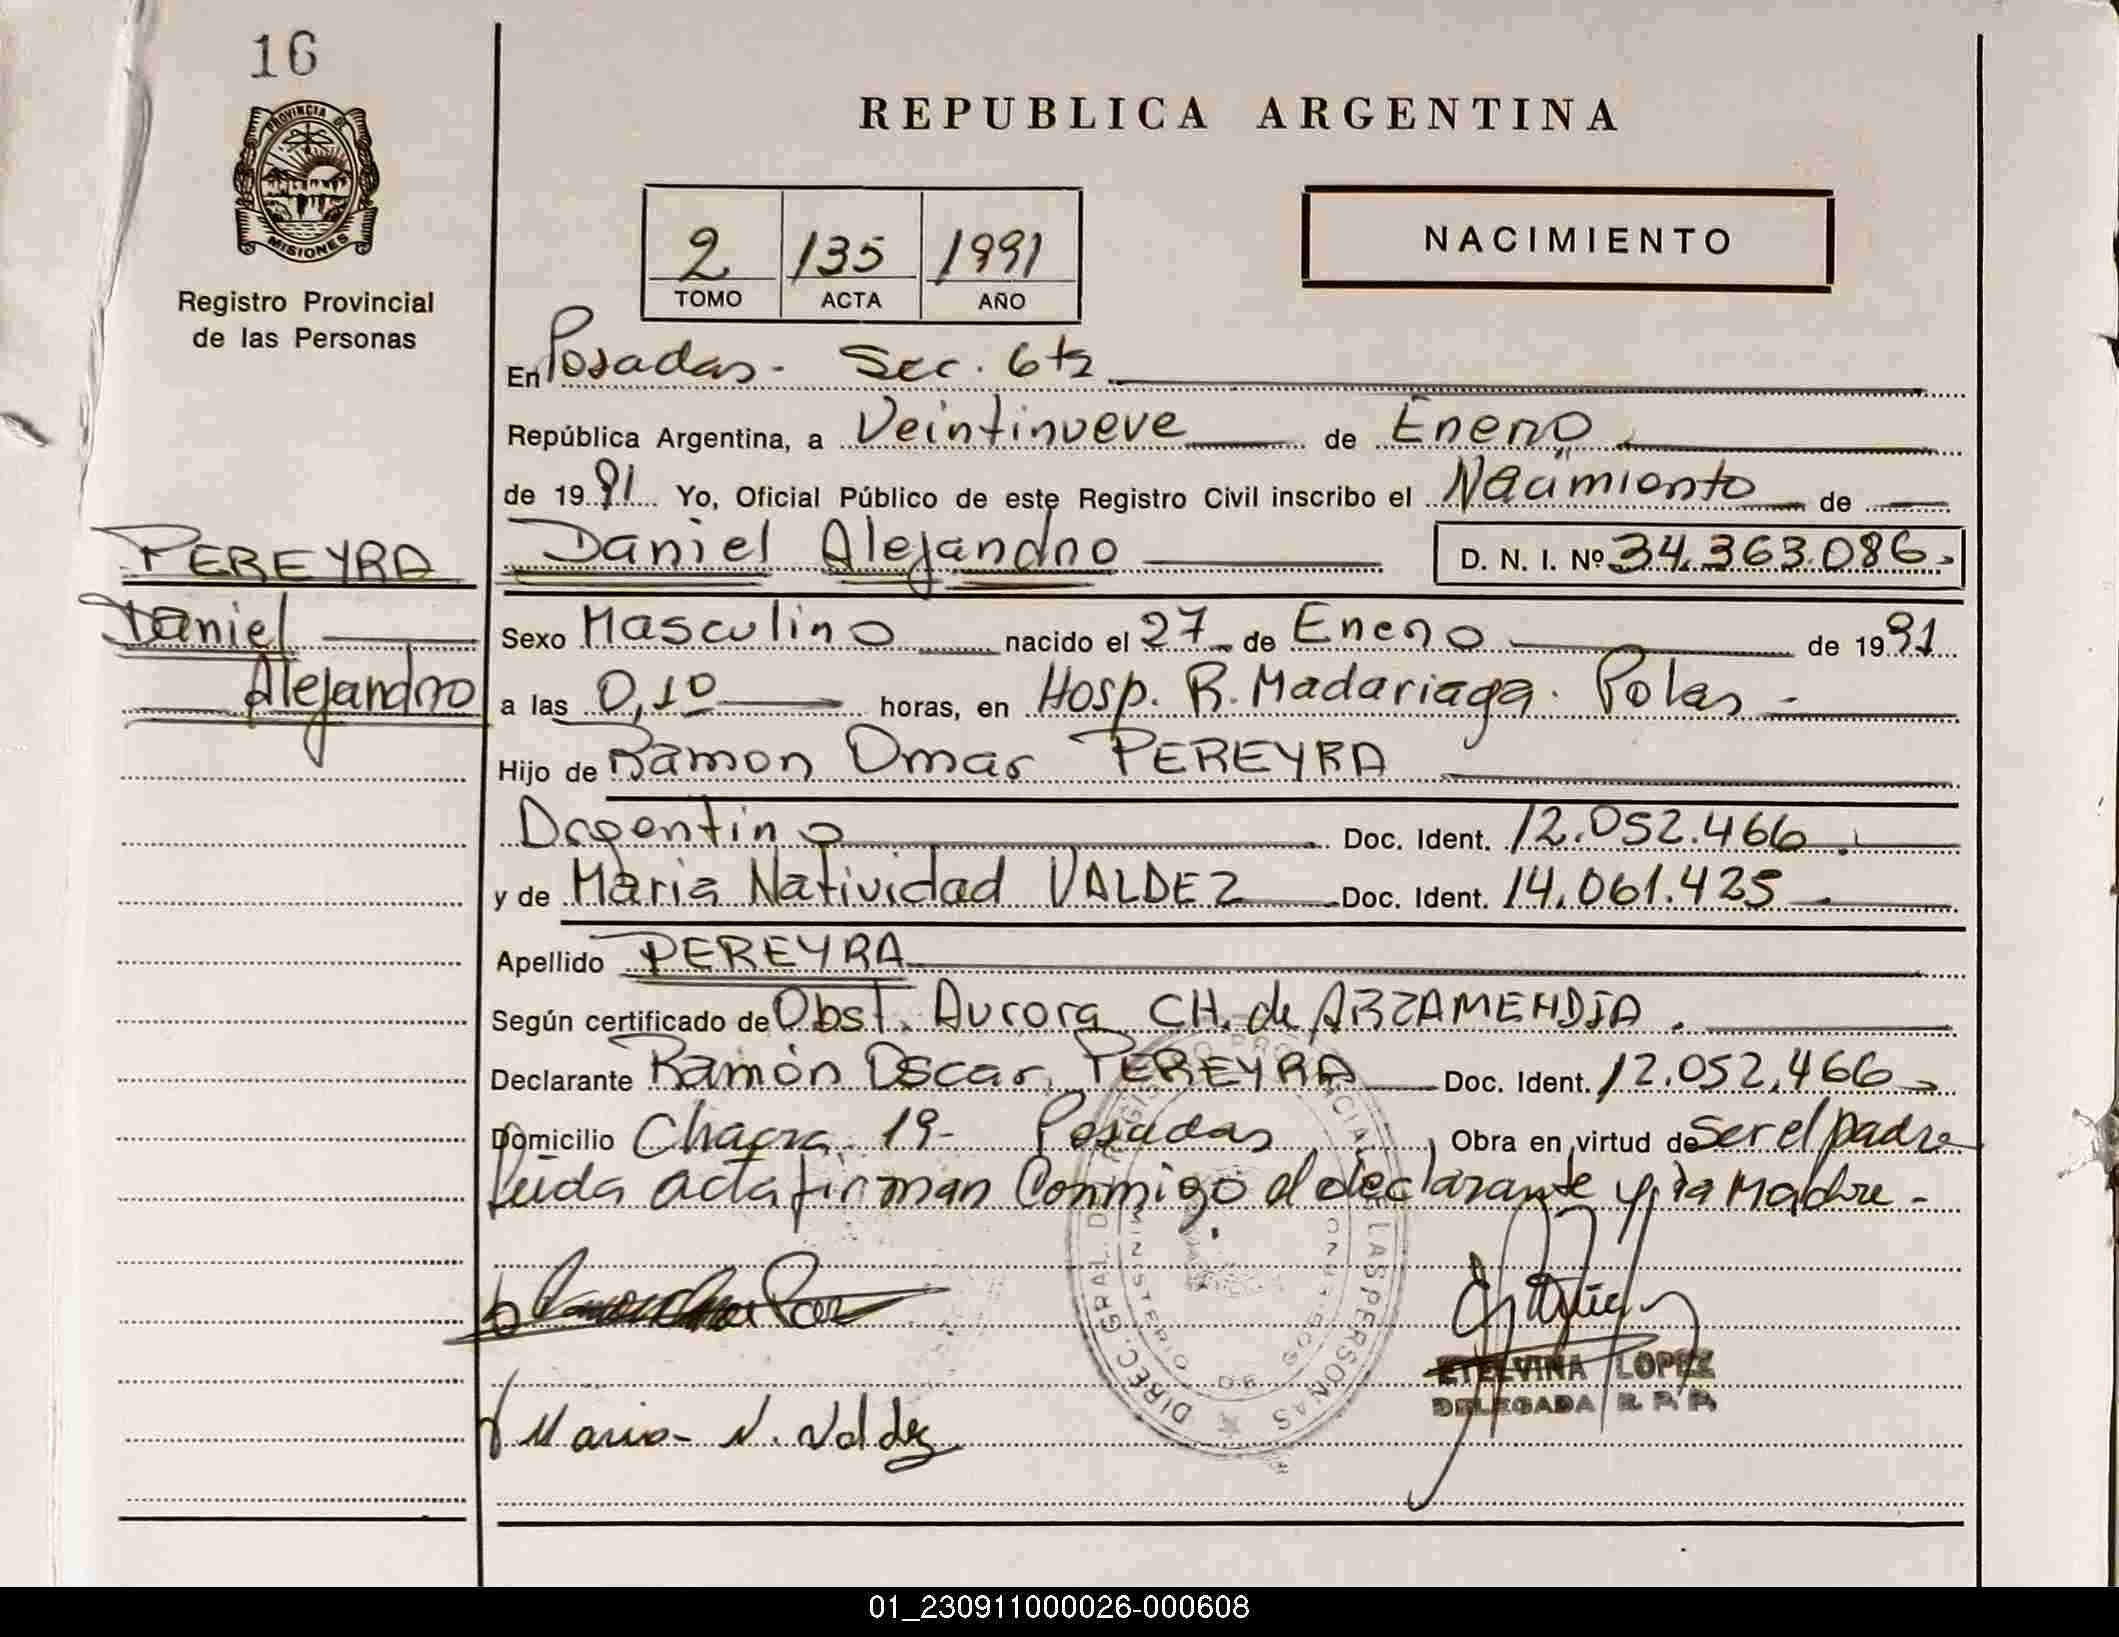 16
PROVINCIA DE
MISIONES
Registro Provincial
de las Personas
REPUBLICA ARGENTINA
2 135 1991
TOMO ACTA AÑO
NACIMIENTO
En Posadas - Sec. 6ta
República Argentina, a Veintinueve de Enero
de 1991 Yo, Oficial Público de este Registro Civil inscribo el Nacimiento de
PEREYRA
Daniel
Alejandro
Daniel Alejandro D. N. I. Nº 34.363.086.
Sexo Masculino nacido el 27 de Enero de 1991
a las 0,10 horas, en Hosp. R. Madariaga. Pdas -
Hijo de Ramon Omar PEREYRA
Argentino Doc. Ident. 12.052.466.
y de Maria Natividad VALDEZ Doc. Ident. 14.061.425
Apellido PEREYRA
Según certificado de Obst. Aurora CH. de ARZAMENDIA.
Declarante Ramón Oscar PEREYRA Doc. Ident. 12.052.466
Domicilio Chacra 19- Posadas, Obra en virtud de Ser el padre
Leida acta firman Conmigo el declarante y la Madre -
DIREC. GRAL. DEL REGISTRO PROVINCIAL DE LAS PERSONAS
MINISTERIO DE GOBIERNO
ETELVINA LOPEZ
DELEGADA R. P. P.
Maria N. Valdez
01_230911000026-000608